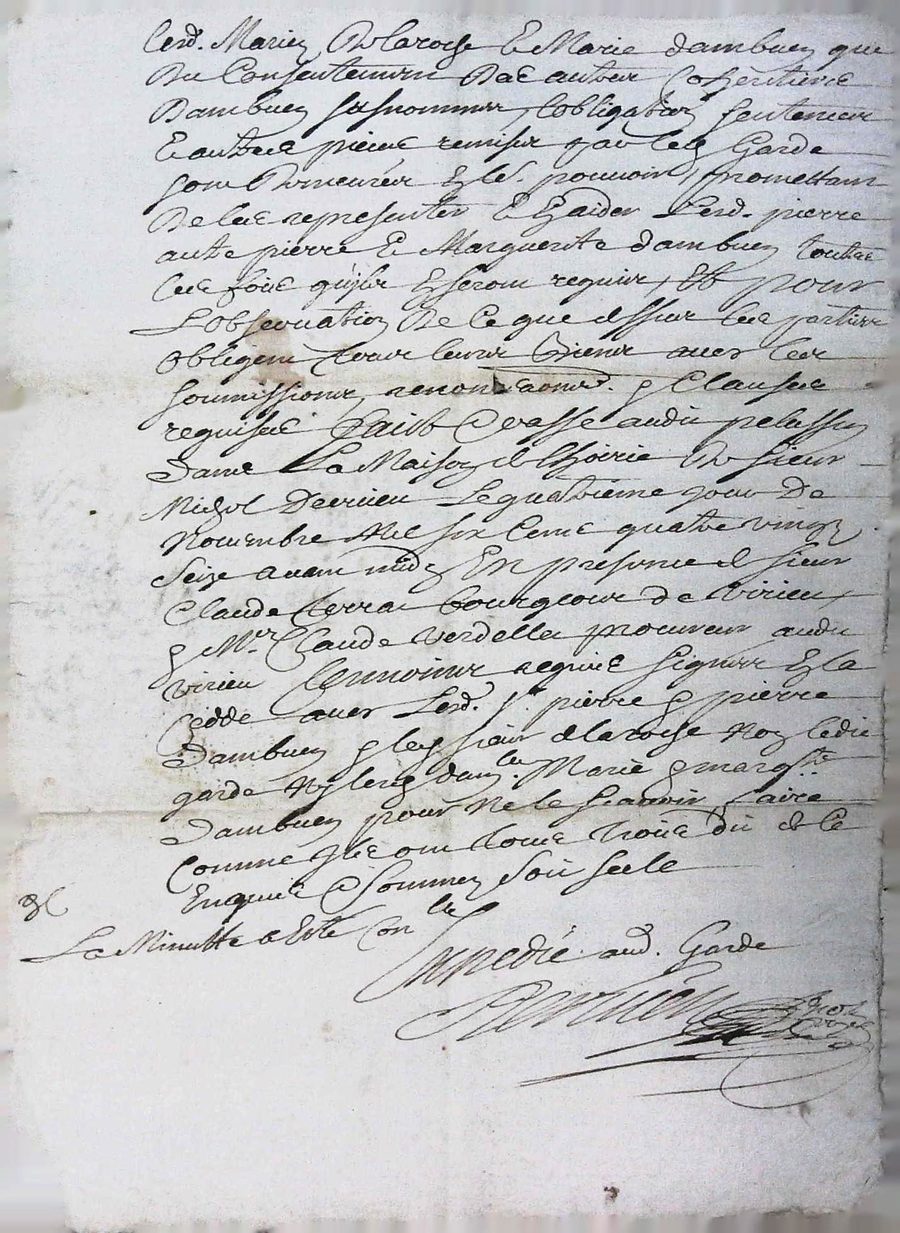 lesd. Mariez Delaroche & Marie dambuen que
Du Consentement Des autres Cohéritiers
Dambuen susnommes, l'obligation sentences
& autres pieces remises par led. Garde
sont Demeurées pouvoir, promettant
De les representer & aider lesd. pierre
autre pierre & Marguerite dambuen toutes
les fois quils seront requis, Et pour
L'observation De Ce que dessus les parties
obligent tous leurs Biens avec les
soumissions, renons. & Clauses
requises faict & passé audit pelassin
Dans La Maison d'hoirie De sieur
Michel Dervieu Le quatrieme jour De
Novembre Mil six Cens quatre vingt
Seize avant midy En presence de sieur
Claude terra bourgeois de virieu,
& Mre. Claude verdellet procureur audit
virieu tesmoins requis signés
Cedde avec Lesd. srs. pierre & pierre
Dambuen & led. sieur delaroche Non ledit
garde Ny lesd. Marie & margte.
Dambuen pour Ne le scavoir faire
Comme ils ont tous trois dit de Ce
Enquis & sommez Soit scelé
La Minutte a Esté Conlée
Expedié aud. Garde
Dervieu